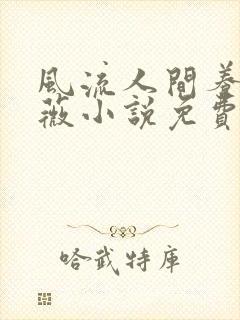 風流人間養
薇小說免費
哈武特庫